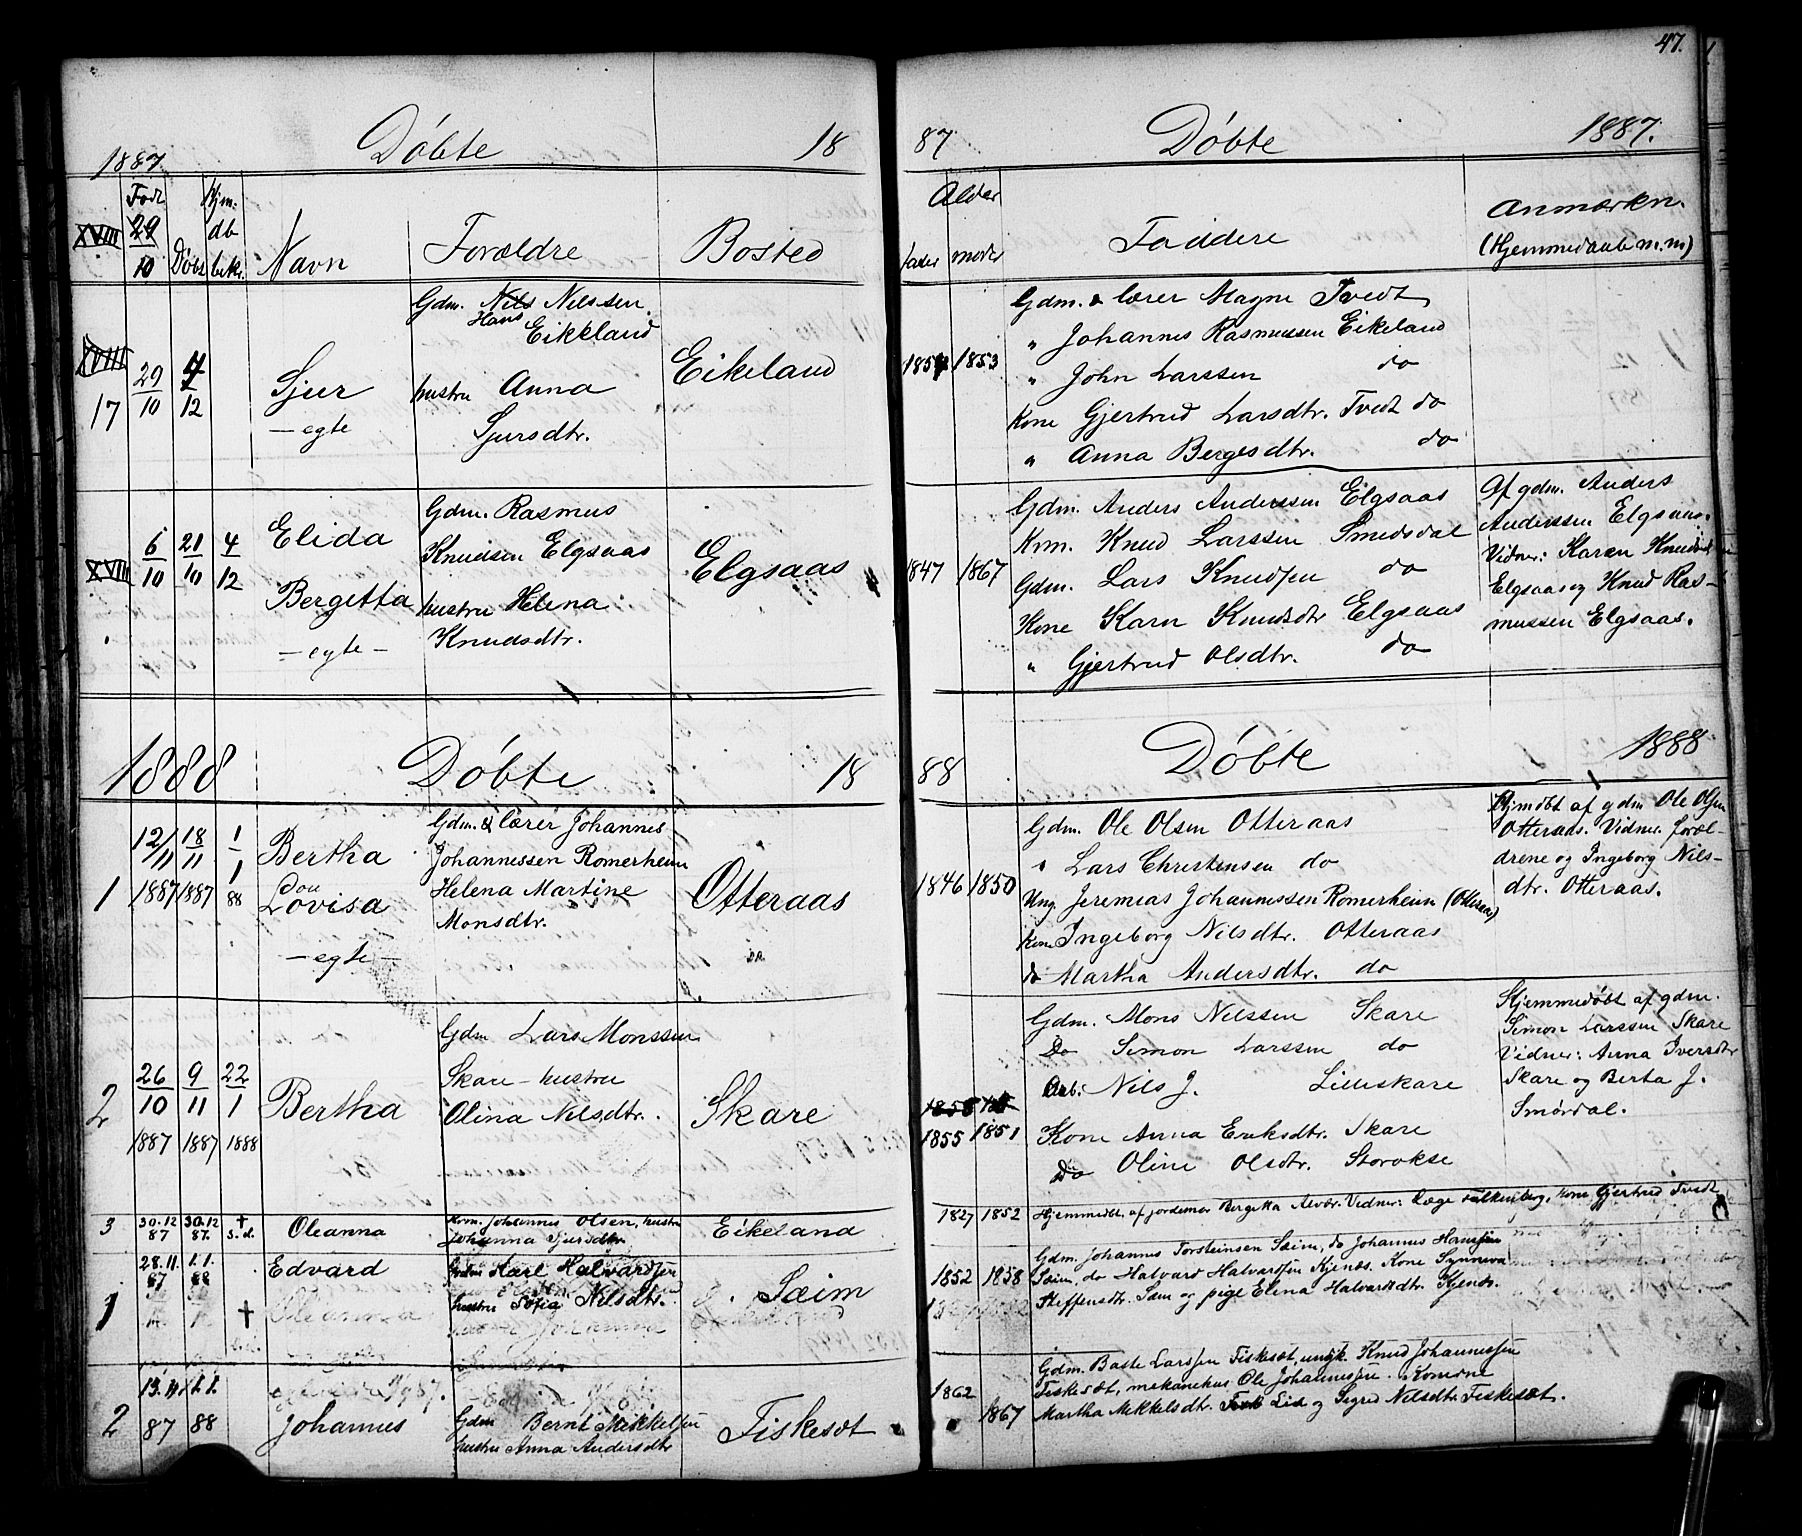 47.
1887. Döbte 18
87 Döbte 1887.
Födt Hjm:
XVIII 29/10 Döbt db bekr. Navn Forældre Bosted
Alder
fader moder Faddere Anmærkn.
(Hjemmedaab m.m)
XVIII
17
29/10 4/12
Sjur
— egte
Gdm. Nils Nilssen
Hans Eikeland
hustru Anna
Sjursdtr.
Eikeland
1854 1853
Gdm. & lærer Magne Tvedt
„ Johannes Rasmussen Eikeland
„ John Larssen do
Kone Gjertrud Larsdtr. Tvedt do
„ Anna Bergesdtr. do
XVIII
6/10 21/10 4/12
Elida
Bergetta
— egte —
Gdm. Rasmus
Knudsen Elgsaas
hustru Helena
Knudsdtr.
Elgsaas
1847 1867
Gdm. Anders Anderssen Elgsaas
Krm. Knud Larssen Smedsdal
Gdm. Lars Knudsen do
Kone Karn Knudsdtr Elgsaas
„ Gjertrud Olsdtr. do
Af gdm. Anders
Anderssen Elgsaas.
Vidner: Karen Knudsd
Elgsaas og Knud Ras-
mussen Elgsaas.
1888 Döbte 18
88 Döbte 1888
1
12/11 18/11 1/1
1887 1887 88
Bertha
Lovisa
— egte —
Gdm. & lærer Johannes
Johannessen Romerheim
Helena Martine
Monsdtr.
Otteraas
1846 1850
Gdm. Ole Olsen Otteraas
„ Lars Christensen do
Ung. Jeremias Johannessen Romerheim (Otteraas)
Kone Ingeborg Nilsdtr. Otteraas
do Martha Andersdtr. do
Hjmdöbt af gdm Ole Olsen
Otteraas. Vidner. foræl-
drene og Ingeborg Nils-
dtr. Otteraas.
2
26/10 9/11 22/1
1887 1887 1888
Bertha
Gdm Lars Monssen
Skare – hustru
Olina Nilsdtr.
Skare
1855 1851
Gdm. Mons Nilssen Skare
Do Simon Larssen do
Arb: Nils J. Lilleskare
Kone Anna Eriksdtr. Skare
Do Oline Olsdtr. Storokse
Hjemmedöbt af gdm.
Simon Larssen Skare
Vidner: Anna Iversdtr
Skare og Berta J.
Smördal.
3
30.12 87 30.12 87. † s.d.
Oleanna
Krm. Johannes Olsen, hustru
Johanna Sjursdtr.
Eikeland
1827 1852
Hjemmedbt. af jordemor Bergitta Alvær. Vidner: Læge Falkenberg, kone Gjertrud Tvedt
1
28.11. 87 1.1. 88
Edvard
Gdm Karl Halvardsen
hustru Sofia Nilsdtr.
Sæim
1852 1858
Gdm. Johannes Torsteinsen Sæim, do Johannes Hanssen
Sæim, do Halvard Halvardsen Kjenes. Kone Synneva
Steffensdtr. Sæm og pige Elina Halvardsdtr. Kjenes.
2
13.11 87 1.1. 88
Johannes
Gdm Bernt Mikkelsen
hustru Anna Andersdtr
Fiskesæt
1862 1867
Gdm. Baste Larssen Fiskesæt, ungk. Knud Johannessen
Fiskesæt, mekanikus Ole Johannessen. Konerne
Martha Mikkelsdtr. Lid og Sigrid Nilsdtr. Fiskesæt.